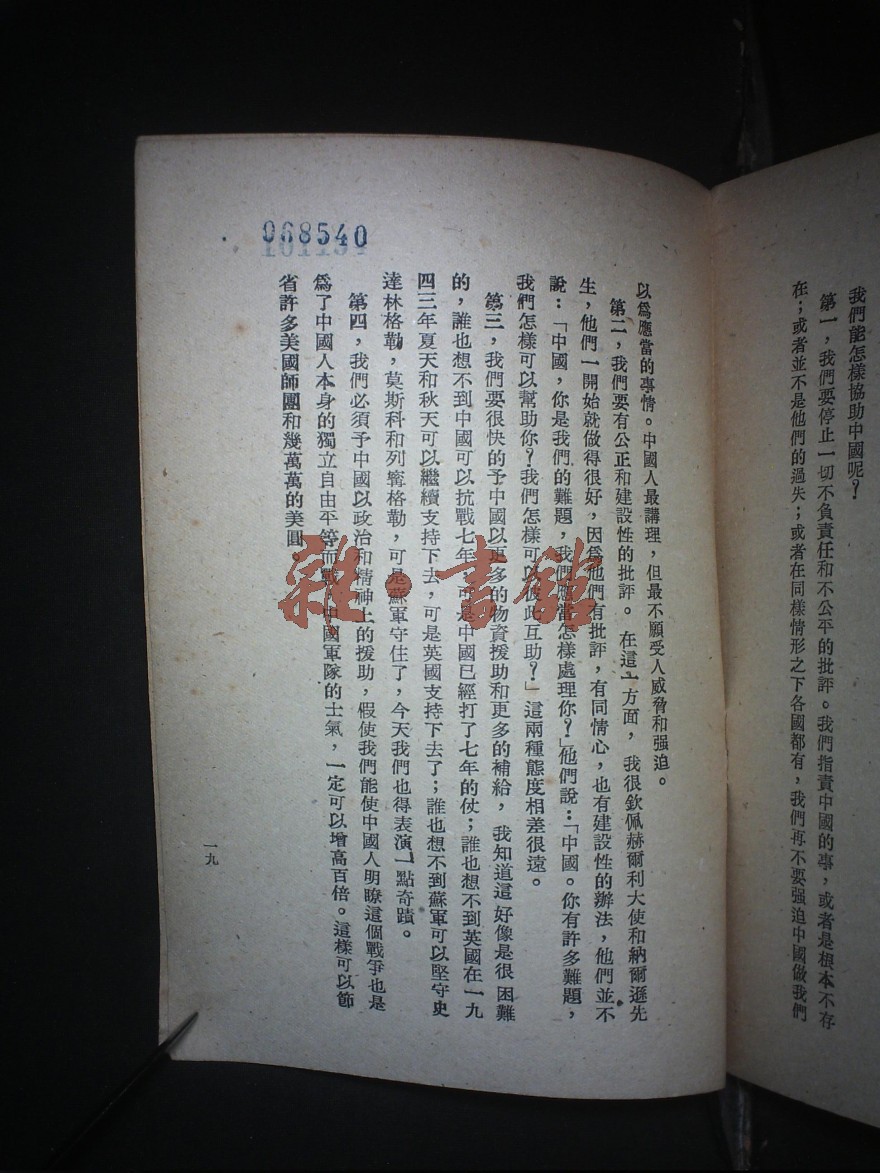 我們能怎樣協助中國呢？
第一，我們要停止一切不負責任和不公平的批評。我們指責中國的事，或者是根本不存
在；或者並不是他們的過失；或者在同樣情形之下各國都有，我們再不要强迫中國做我們
以爲應當的事情。中國人最講理，但最不願受人威脅和强迫。
第二，我們要有公正和建設性的批評。在這一方面，我很欽佩赫爾利大使和納爾遜先
生，他們一開始就做得很好，因爲他們有批評，有同情心，也有建設性的辦法，他們並不
說：「中國，你是我們的難題，我們應當怎樣處理你？」他們說：「中國。你有許多難題，
我們怎樣可以幫助你？我們怎樣可以彼此互助？」這兩種態度相差很遠。
第三，我們要很快的予中國以更多的物資援助和更多的補給，我知道這好像是很困難
的，誰也想不到中國可以抗戰七年，可是中國已經打了七年的仗；誰也想不到英國在一九
四三年夏天和秋天可以繼續支持下去，可是英國支持下去了；誰也想不到蘇軍可以堅守史
達林格勒，莫斯科和列寗格勒，可是蘇軍守住了，今天我們也得表演一點奇蹟。
第四，我們必須予中國以政治和精神上的援助，假使我們能使中國人明瞭這個戰爭也是
爲了中國人本身的獨立自由平等而戰，中國軍隊的士氣，一定可以增高百倍。這樣可以節
省許多美國師團和幾萬萬的美圓。
068540
一九
雜·書館